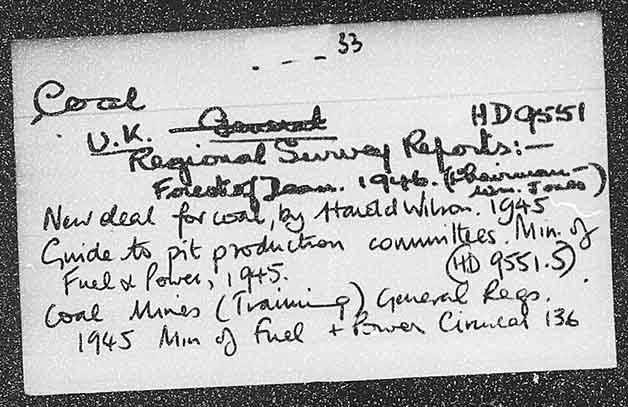 - - - 33
Coal
U.K. General HD9551
Regional Survey Reports:-
Forest of Dean. 1946. (Chairman-
Wm. Jones)
New deal for coal, by Harold Wilson. 1945
Guide to pit production committees. Min. of
Fuel & Power, 1945. (HD 9551.5)
Coal Mines (Training) General Regs.
1945 Min of Fuel + Power Circular 136